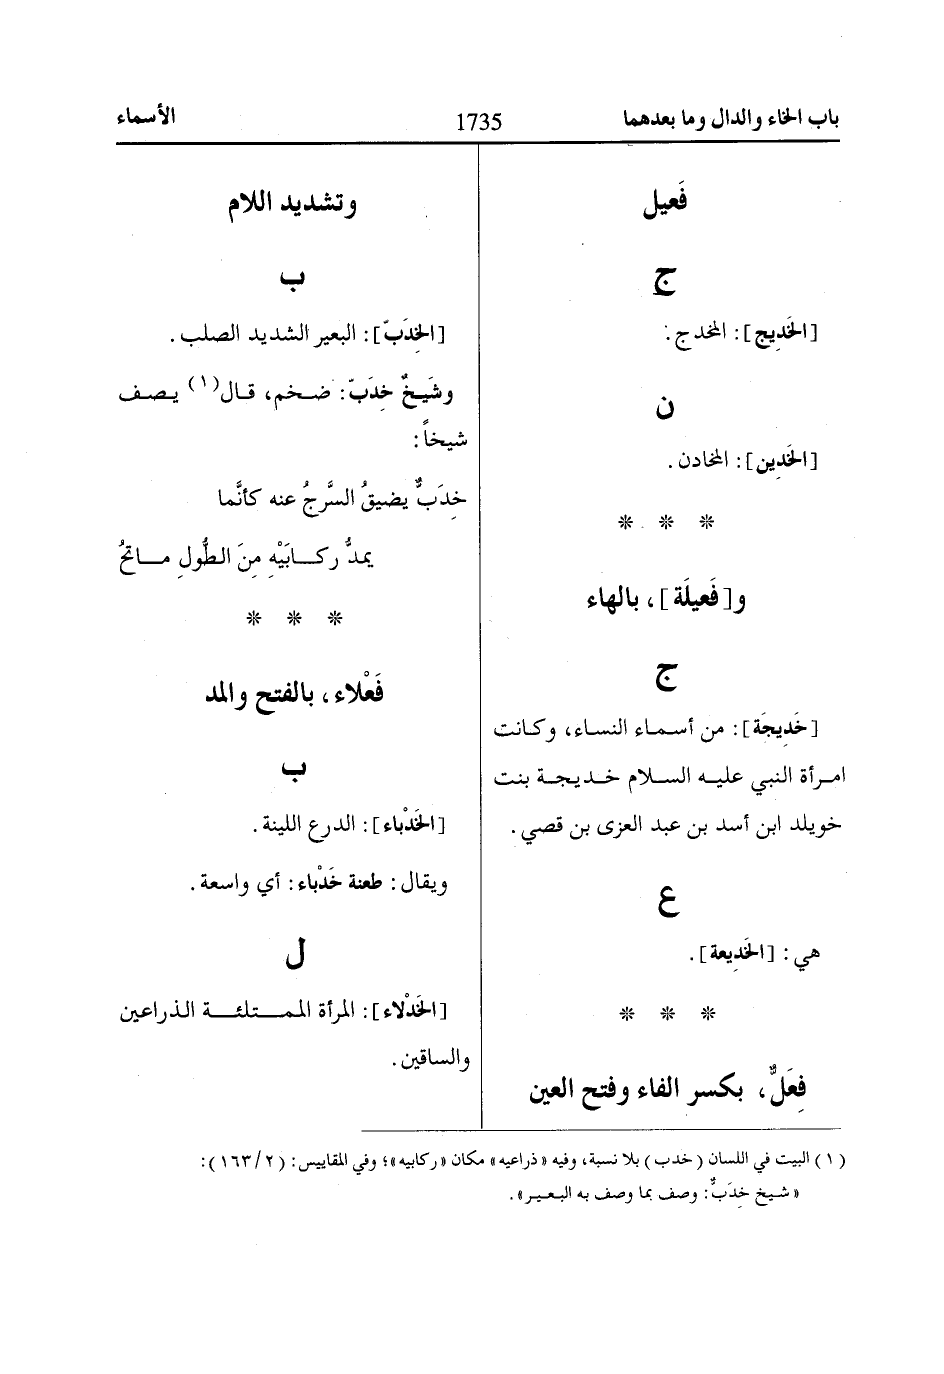 باب الخاء والدال وما بعدهما 1735 الأسماء
فَعيل
ج
[الخَدِيج]: المخدج.
ن
[الخَدِين]: المخادن.
* * *
و[فَعيلَة]، بالهاء
ج
[خَدِيجَة]: من أسماء النساء، وكانت
امرأة النبي عليه السلام خديجة بنت
خويلد ابن أسد بن عبد العزى بن قصي.
ع
هي: [الخَدِيعة].
* * *
فِعَلٌّ، بكسر الفاء وفتح العين
وتشديد اللام
ب
[الخِدَبّ]: البعير الشديد الصلب.
وشَيخٌ خِدَبّ: ضخم، قال(١) يصف
شيخاً:
خِدَبٌّ يضيقُ السَّرجُ عنه كأنَّما
يمدُّ ركابَيْهِ مِنَ الطُّولِ ماتِحُ
* * *
فَعْلاء، بالفتح والمد
ب
[الخَدْباء]: الدرع اللينة.
ويقال: طعنة خَدْباء: أي واسعة.
ل
[الخَدْلاء]: المرأة الممتلئة الذراعين
والساقين.
(١) البيت في اللسان (خدب) بلا نسبة، وفيه «ذراعيه» مكان «ركابيه»؛ وفي المقاييس: (٢/١٦٣):
«شيخ خِدَبٌّ: وصف بما وصف به البعير».